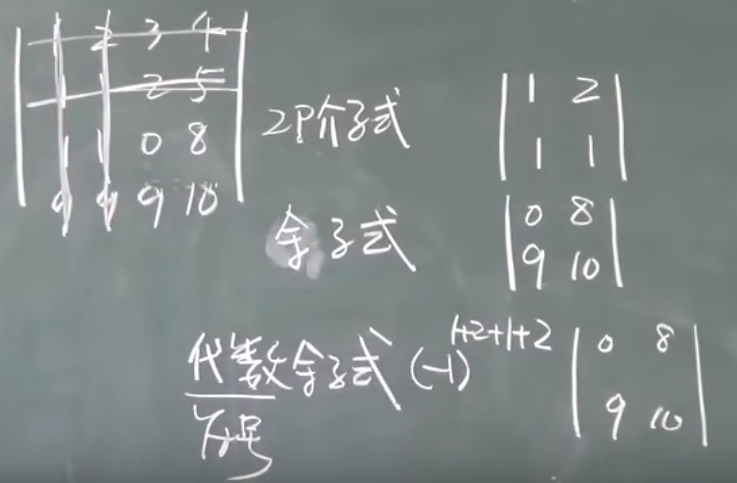 1 2 3 4
1 1 2 5
1 1 0 8
9 9 9 10
2阶子式 | 1 2 |
| 1 1 |
余子式 | 0 8 |
| 9 10 |
代数余子式 (-1)^{1+2+1+2} | 0 8 |
| 9 10 |
符号